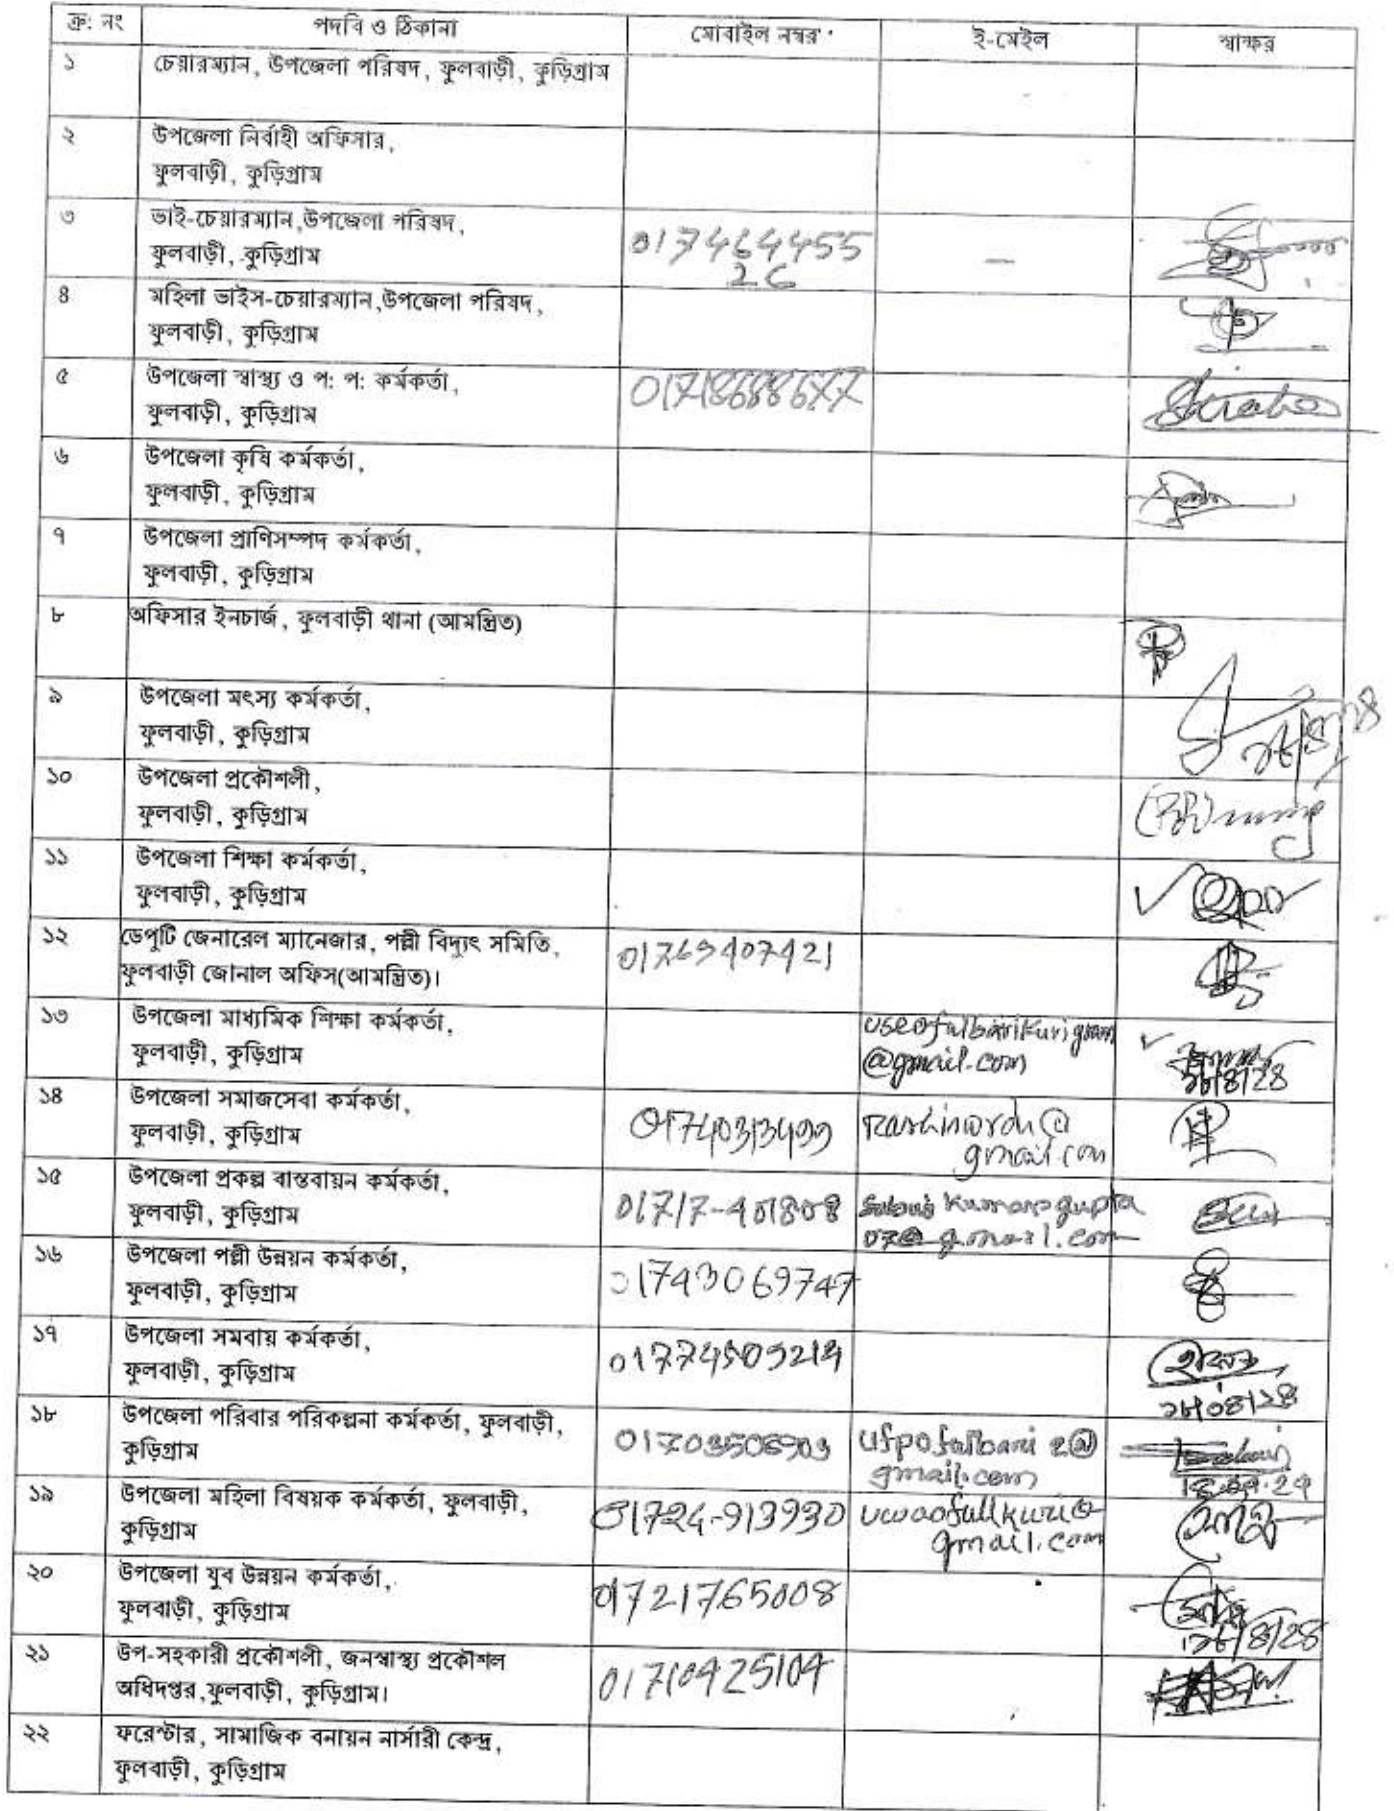 ক্র: নং পদবি ও ঠিকানা মোবাইল নম্বর ই-মেইল স্বাক্ষর
১ চেয়ারম্যান, উপজেলা পরিষদ, ফুলবাড়ী, কুড়িগ্রাম
২ উপজেলা নির্বাহী অফিসার,
ফুলবাড়ী, কুড়িগ্রাম
৩ ভাই-চেয়ারম্যান,উপজেলা পরিষদ,
ফুলবাড়ী, কুড়িগ্রাম 017464455
26 —
৪ মহিলা ভাইস-চেয়ারম্যান,উপজেলা পরিষদ,
ফুলবাড়ী, কুড়িগ্রাম
৫ উপজেলা স্বাস্থ্য ও প: প: কর্মকর্তা,
ফুলবাড়ী, কুড়িগ্রাম 01718688677
৬ উপজেলা কৃষি কর্মকর্তা,
ফুলবাড়ী, কুড়িগ্রাম
৭ উপজেলা প্রাণিসম্পদ কর্মকর্তা,
ফুলবাড়ী, কুড়িগ্রাম
৮ অফিসার ইনচার্জ, ফুলবাড়ী থানা (আমন্ত্রিত)
৯ উপজেলা মৎস্য কর্মকর্তা,
ফুলবাড়ী, কুড়িগ্রাম
১০ উপজেলা প্রকৌশলী,
ফুলবাড়ী, কুড়িগ্রাম
১১ উপজেলা শিক্ষা কর্মকর্তা,
ফুলবাড়ী, কুড়িগ্রাম
১২ ডেপুটি জেনারেল ম্যানেজার, পল্লী বিদ্যুৎ সমিতি,
ফুলবাড়ী জোনাল অফিস(আমন্ত্রিত)। 01769407421
১৩ উপজেলা মাধ্যমিক শিক্ষা কর্মকর্তা, useofulbarikurigram
ফুলবাড়ী, কুড়িগ্রাম @gmail.com
১৪ উপজেলা সমাজসেবা কর্মকর্তা,
ফুলবাড়ী, কুড়িগ্রাম
gmail.com
১৫ উপজেলা প্রকল্প বাস্তবায়ন কর্মকর্তা,
ফুলবাড়ী, কুড়িগ্রাম 01717-401808
১৬ উপজেলা পল্লী উন্নয়ন কর্মকর্তা,
ফুলবাড়ী, কুড়িগ্রাম 01743069747
১৭ উপজেলা সমবায় কর্মকর্তা,
ফুলবাড়ী, কুড়িগ্রাম
১৮ উপজেলা পরিবার পরিকল্পনা কর্মকর্তা, ফুলবাড়ী,
কুড়িগ্রাম gmail.com
১৯ উপজেলা মহিলা বিষয়ক কর্মকর্তা, ফুলবাড়ী,
কুড়িগ্রাম 01724-913930 uwaofullkuri@
gmail.com
২০ উপজেলা যুব উন্নয়ন কর্মকর্তা,
ফুলবাড়ী, কুড়িগ্রাম 01721765008
২১ উপ-সহকারী প্রকৌশলী, জনস্বাস্থ্য প্রকৌশল
অধিদপ্তর,ফুলবাড়ী, কুড়িগ্রাম। 01710425104
২২ ফরেস্টার, সামাজিক বনায়ন নার্সারী কেন্দ্র,
ফুলবাড়ী, কুড়িগ্রাম